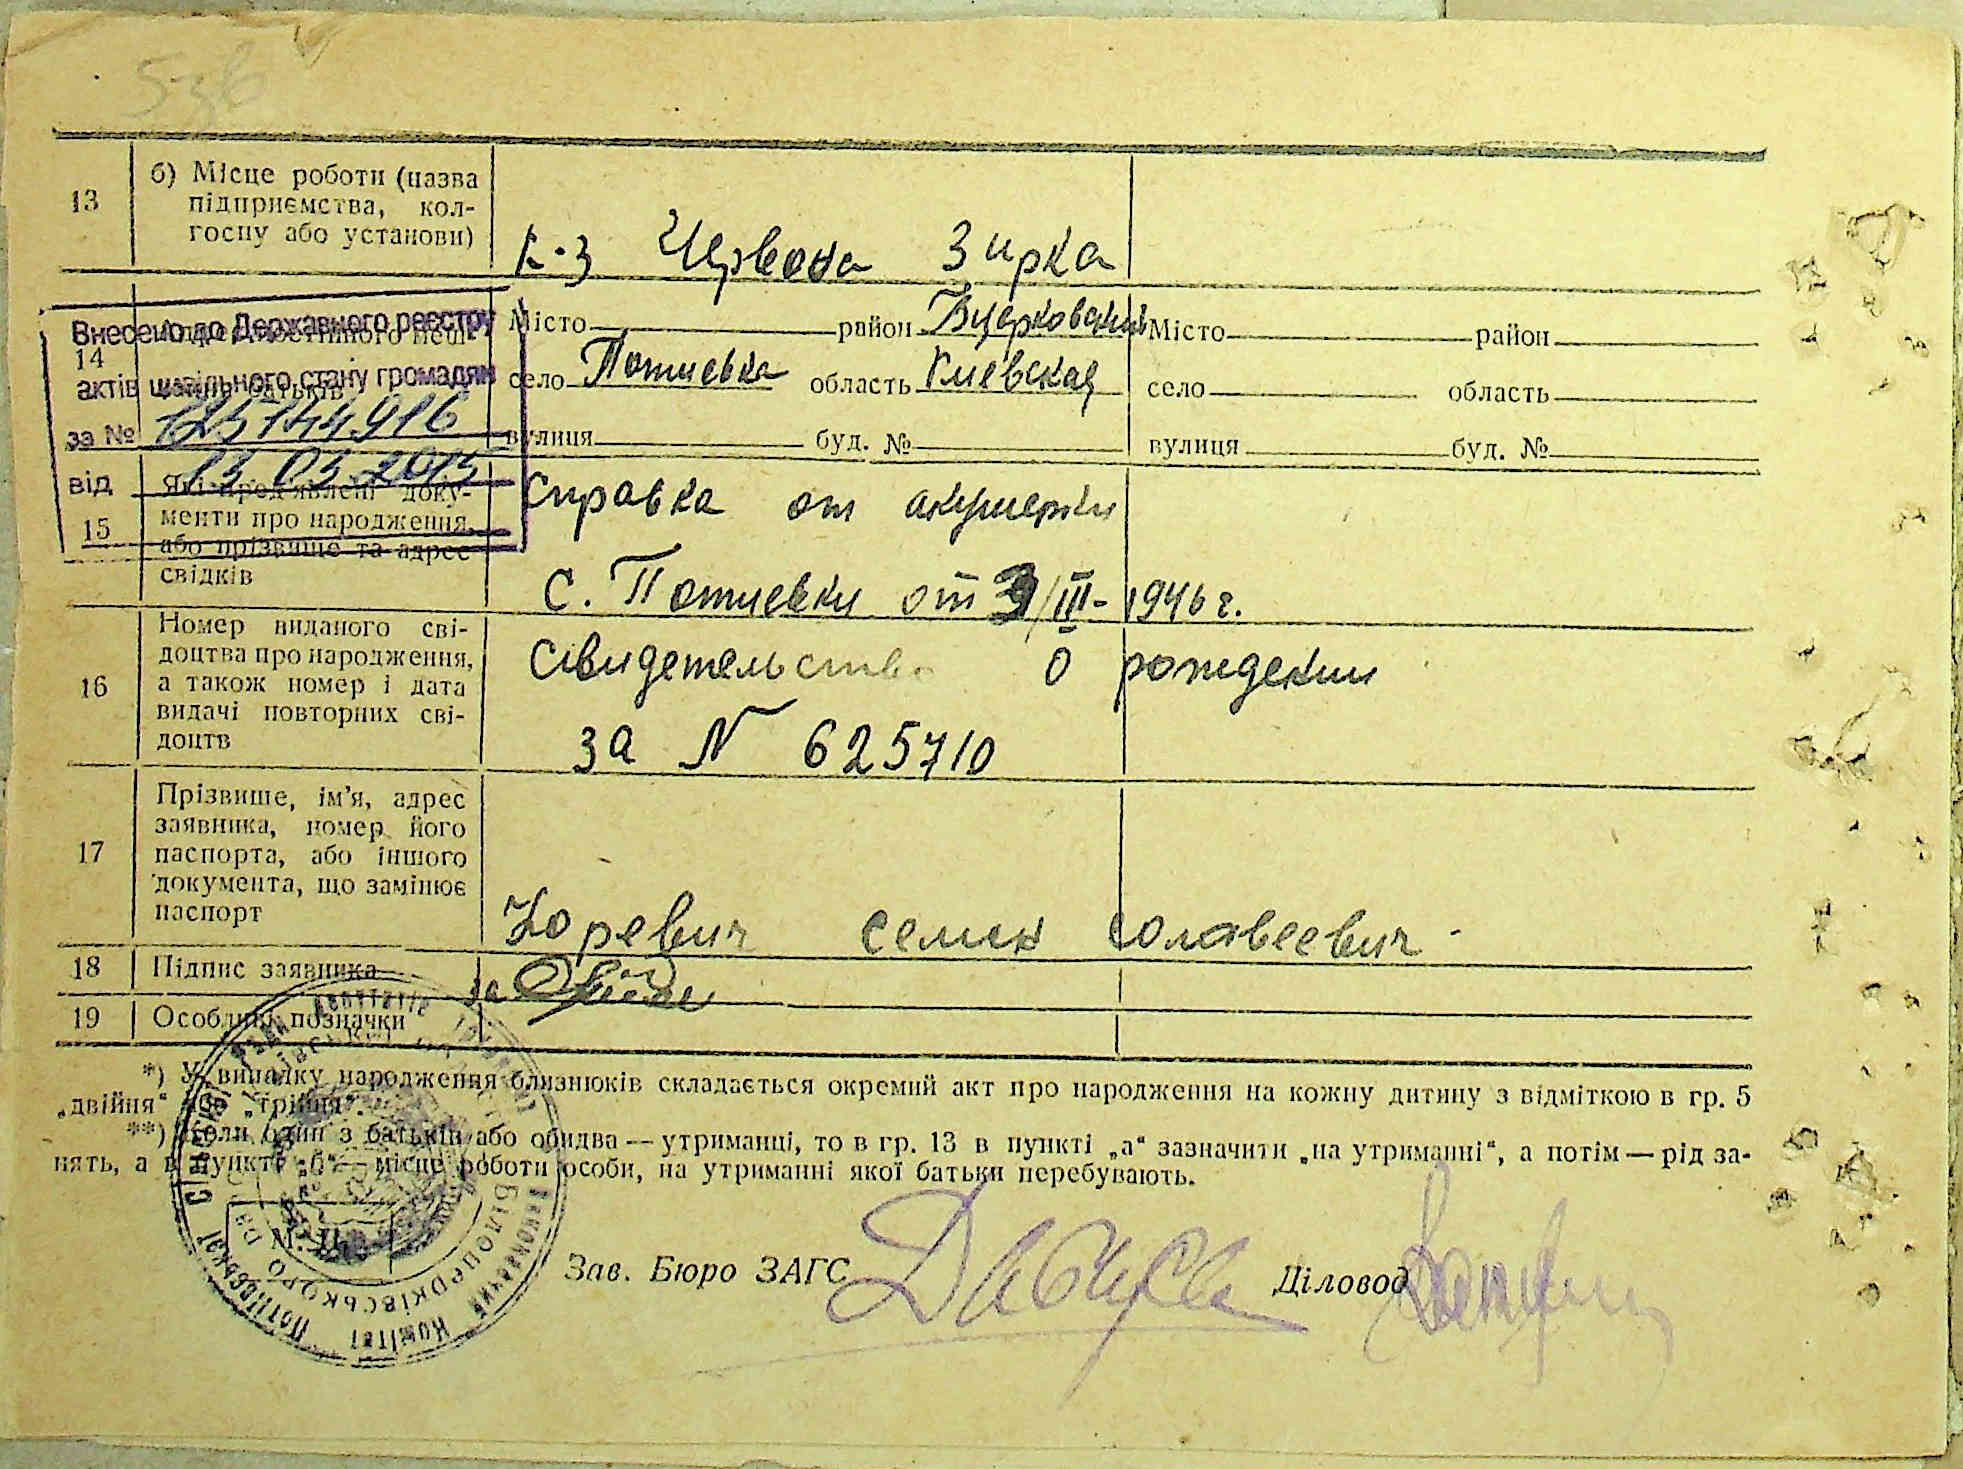 13
б) Місце роботи (назва
підприємства, кол-
госпу або установи)
к-з Червона Зирка
14
Внесено до Державного реєстру
актів цивільного стану громадян
за № 125144916
від 13.03.2013
Місто район Бцерковский
село Потиевка область Киевская
вулиця буд. №
Місто район
село область
вулиця буд. №
15
Які пред'явлені доку-
менти про народження,
або прізвище та адрес
свідків
Справка от акушерки
с. Потиевки от /III- 1946 г.
16
Номер виданого сві-
доцтва про народження,
а також номер і дата
видачі повторних сві-
доцтв
Свидетельство о рождении
за N 625710
17
Прізвище, ім'я, адрес
заявника, номер його
паспорта, або іншого
документа, що замінює
паспорт
Юревич семен солавеевич
18
Підпис заявника
за
19
Особливі позначки
*) У випадку народження близнюків складається окремий акт про народження на кожну дитину з відміткою в гр. 5
„двійня“ або „трійня“.
**) Коли один з батьків або обидва — утриманці, то в гр. 13 в пункті „а“ зазначити „на утриманні“, а потім — рід за-
нять, а в пункті „б“ — місце роботи особи, на утриманні якої батьки перебувають.
М. П.
Зав. Бюро ЗАГС
Діловод